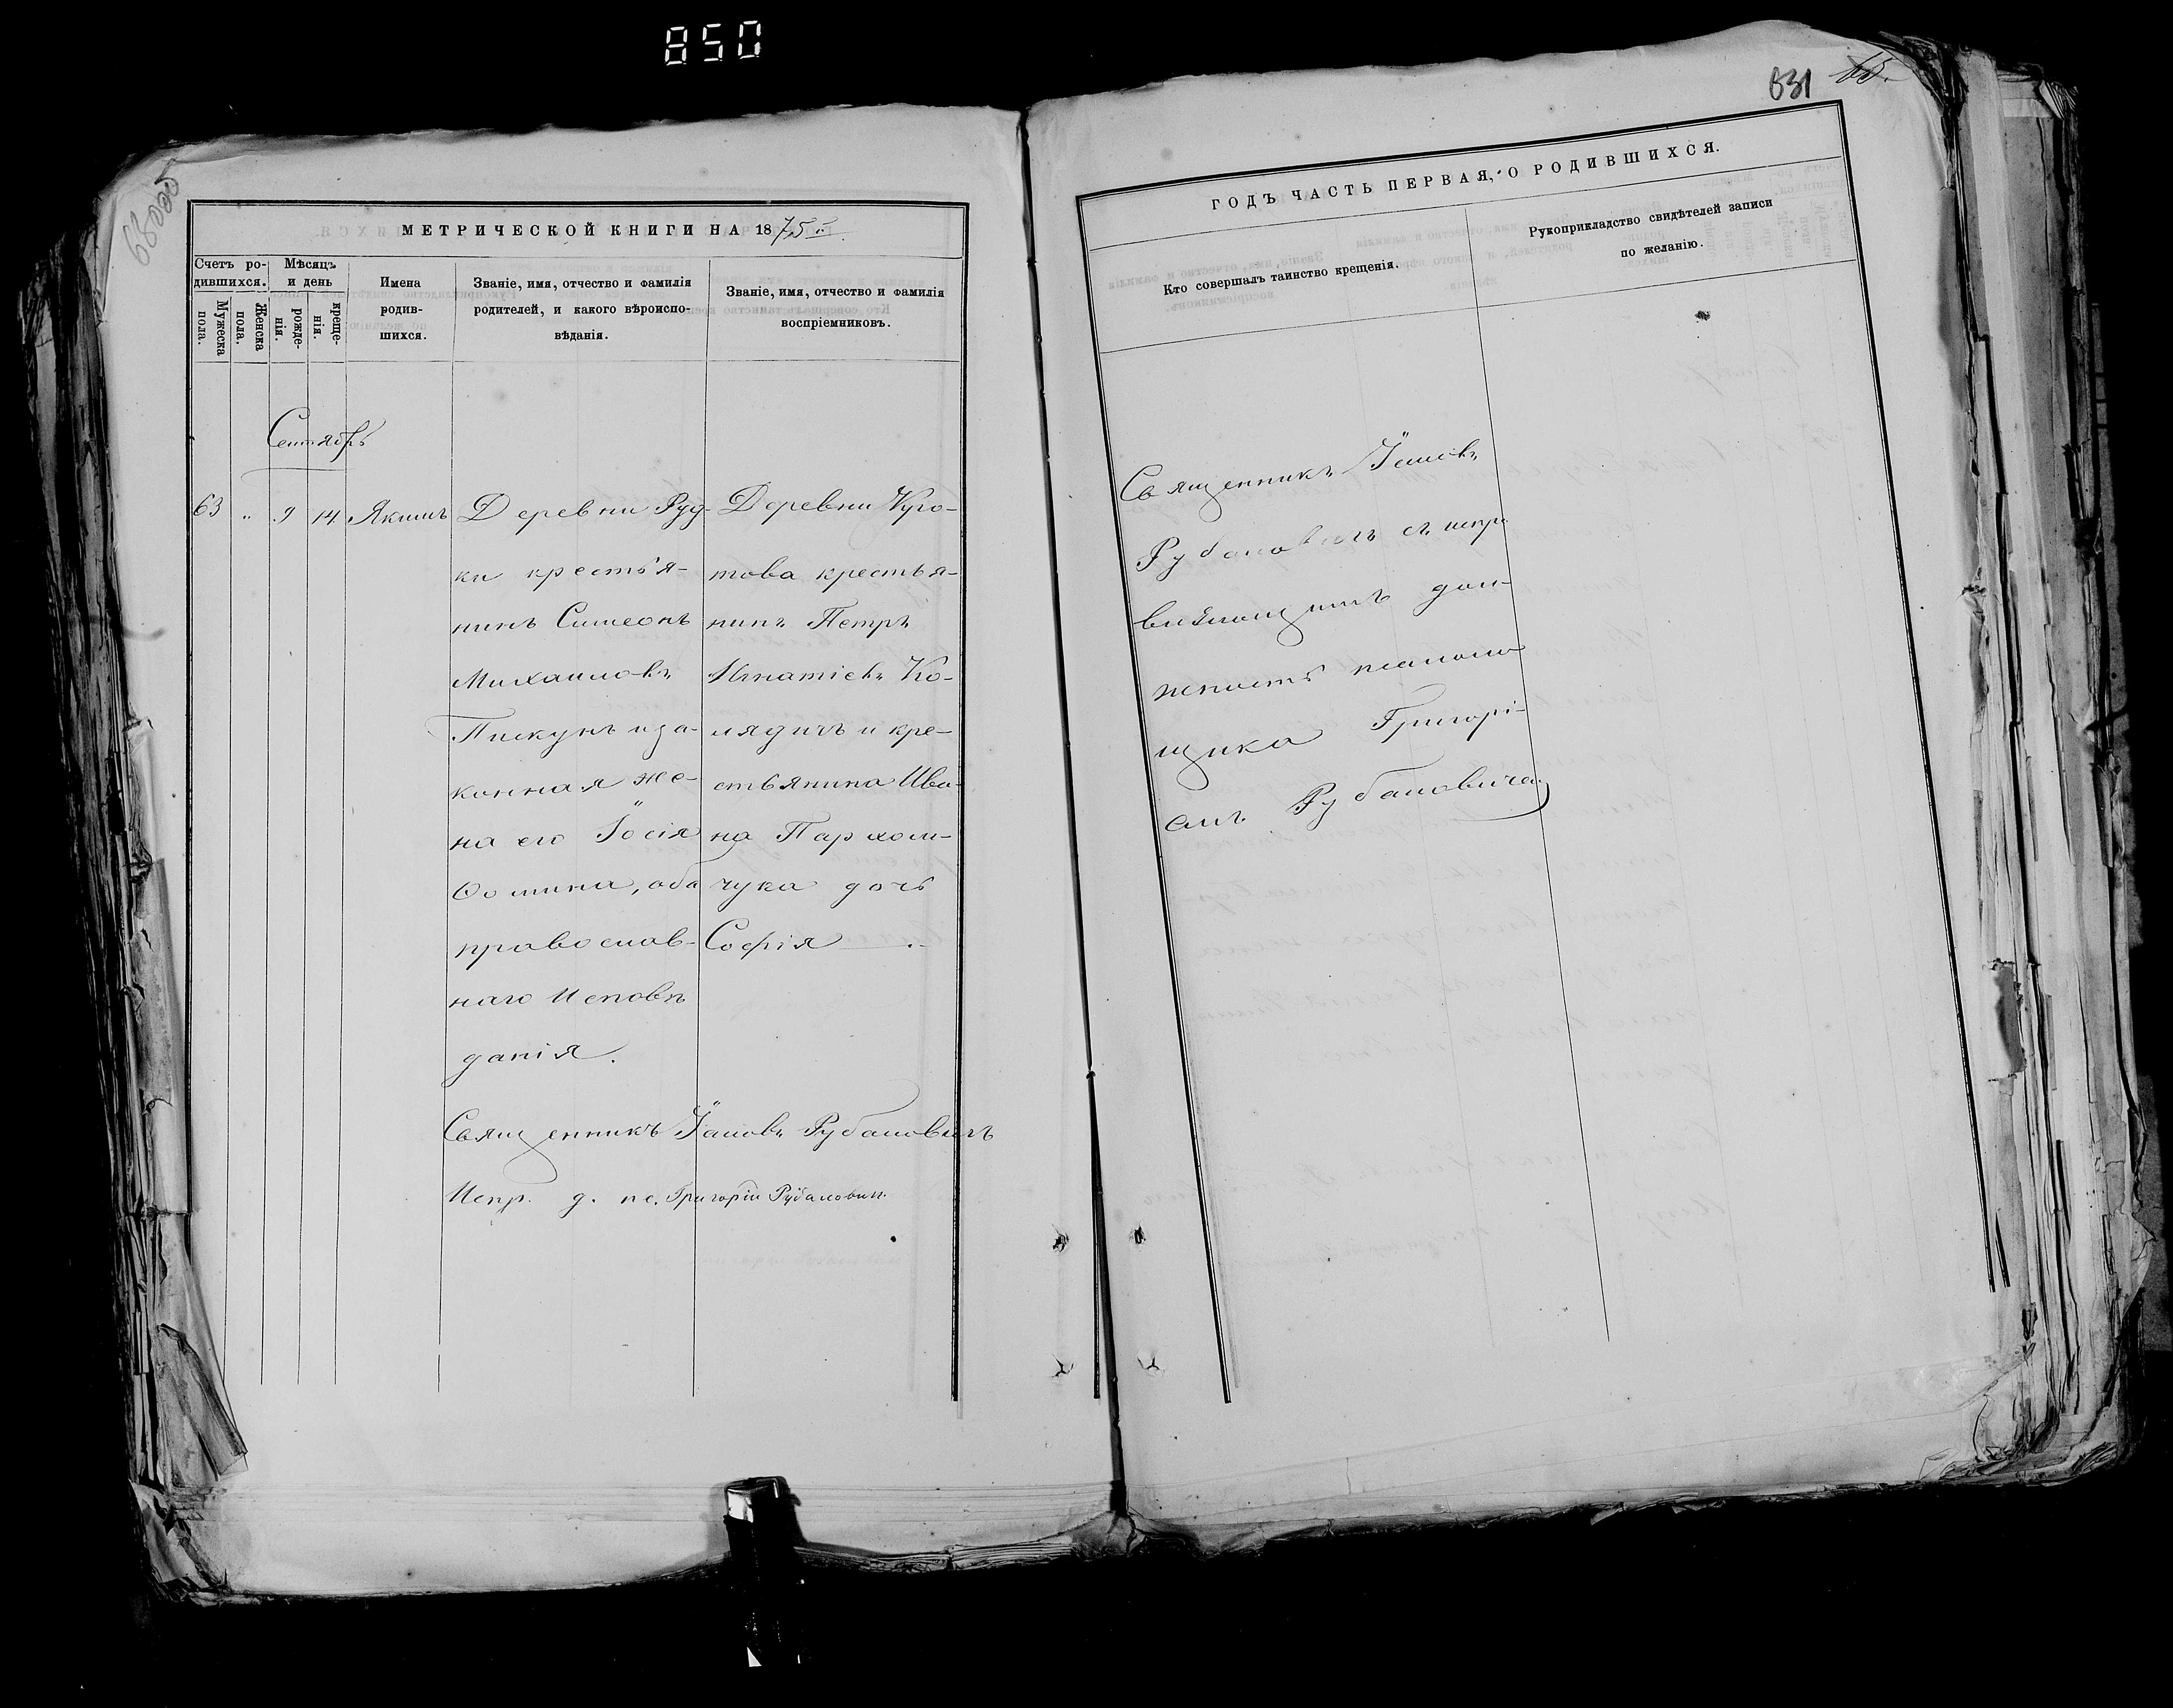 850
631
65.
МЕТРИЧЕСКОЙ КНИГИ НА 1875й
Счетъ ро-
дившихся.
Мужеска
пола.
Женска
пола.
Мѣсяцъ
и день
рожде-
нія.
креще-
нія.
Имена
родив-
шихся.
Званіе, имя, отчество и фамилія
родителей, и какого вѣроиспо-
вѣданія.
Званіе, имя, отчество и фамилія
воспріемниковъ.
Сентябрь
63 " 9 14 Якимъ
Деревни Руд-
ки крестья-
нинъ Симеонъ
Михаиловъ
Пискунъ и за-
конная же-
на его Іосія
Ѳомина, оба
православ-
наго Исповѣ
данія.
Деревни Куро-
това крестья-
нинъ Петръ
Игнатіевъ Ко-
лядичъ и кре-
стьянина Ива-
на Пархом-
чука дочь
Софія
Священникъ Іаковъ Рубановичъ
Испр. д. пс. Григорій Рубанович
ГОДЪ ЧАСТЬ ПЕРВАЯ, О РОДИВШИХСЯ.
Кто совершалъ таинство крещенія.
Рукоприкладство свидѣтелей записи
по желанію.
Священникъ Іаковъ
Рубановичъ съ испра
вляющимъ дол-
жность псаломъ
щика Григорі-
емъ Рубановичемъ